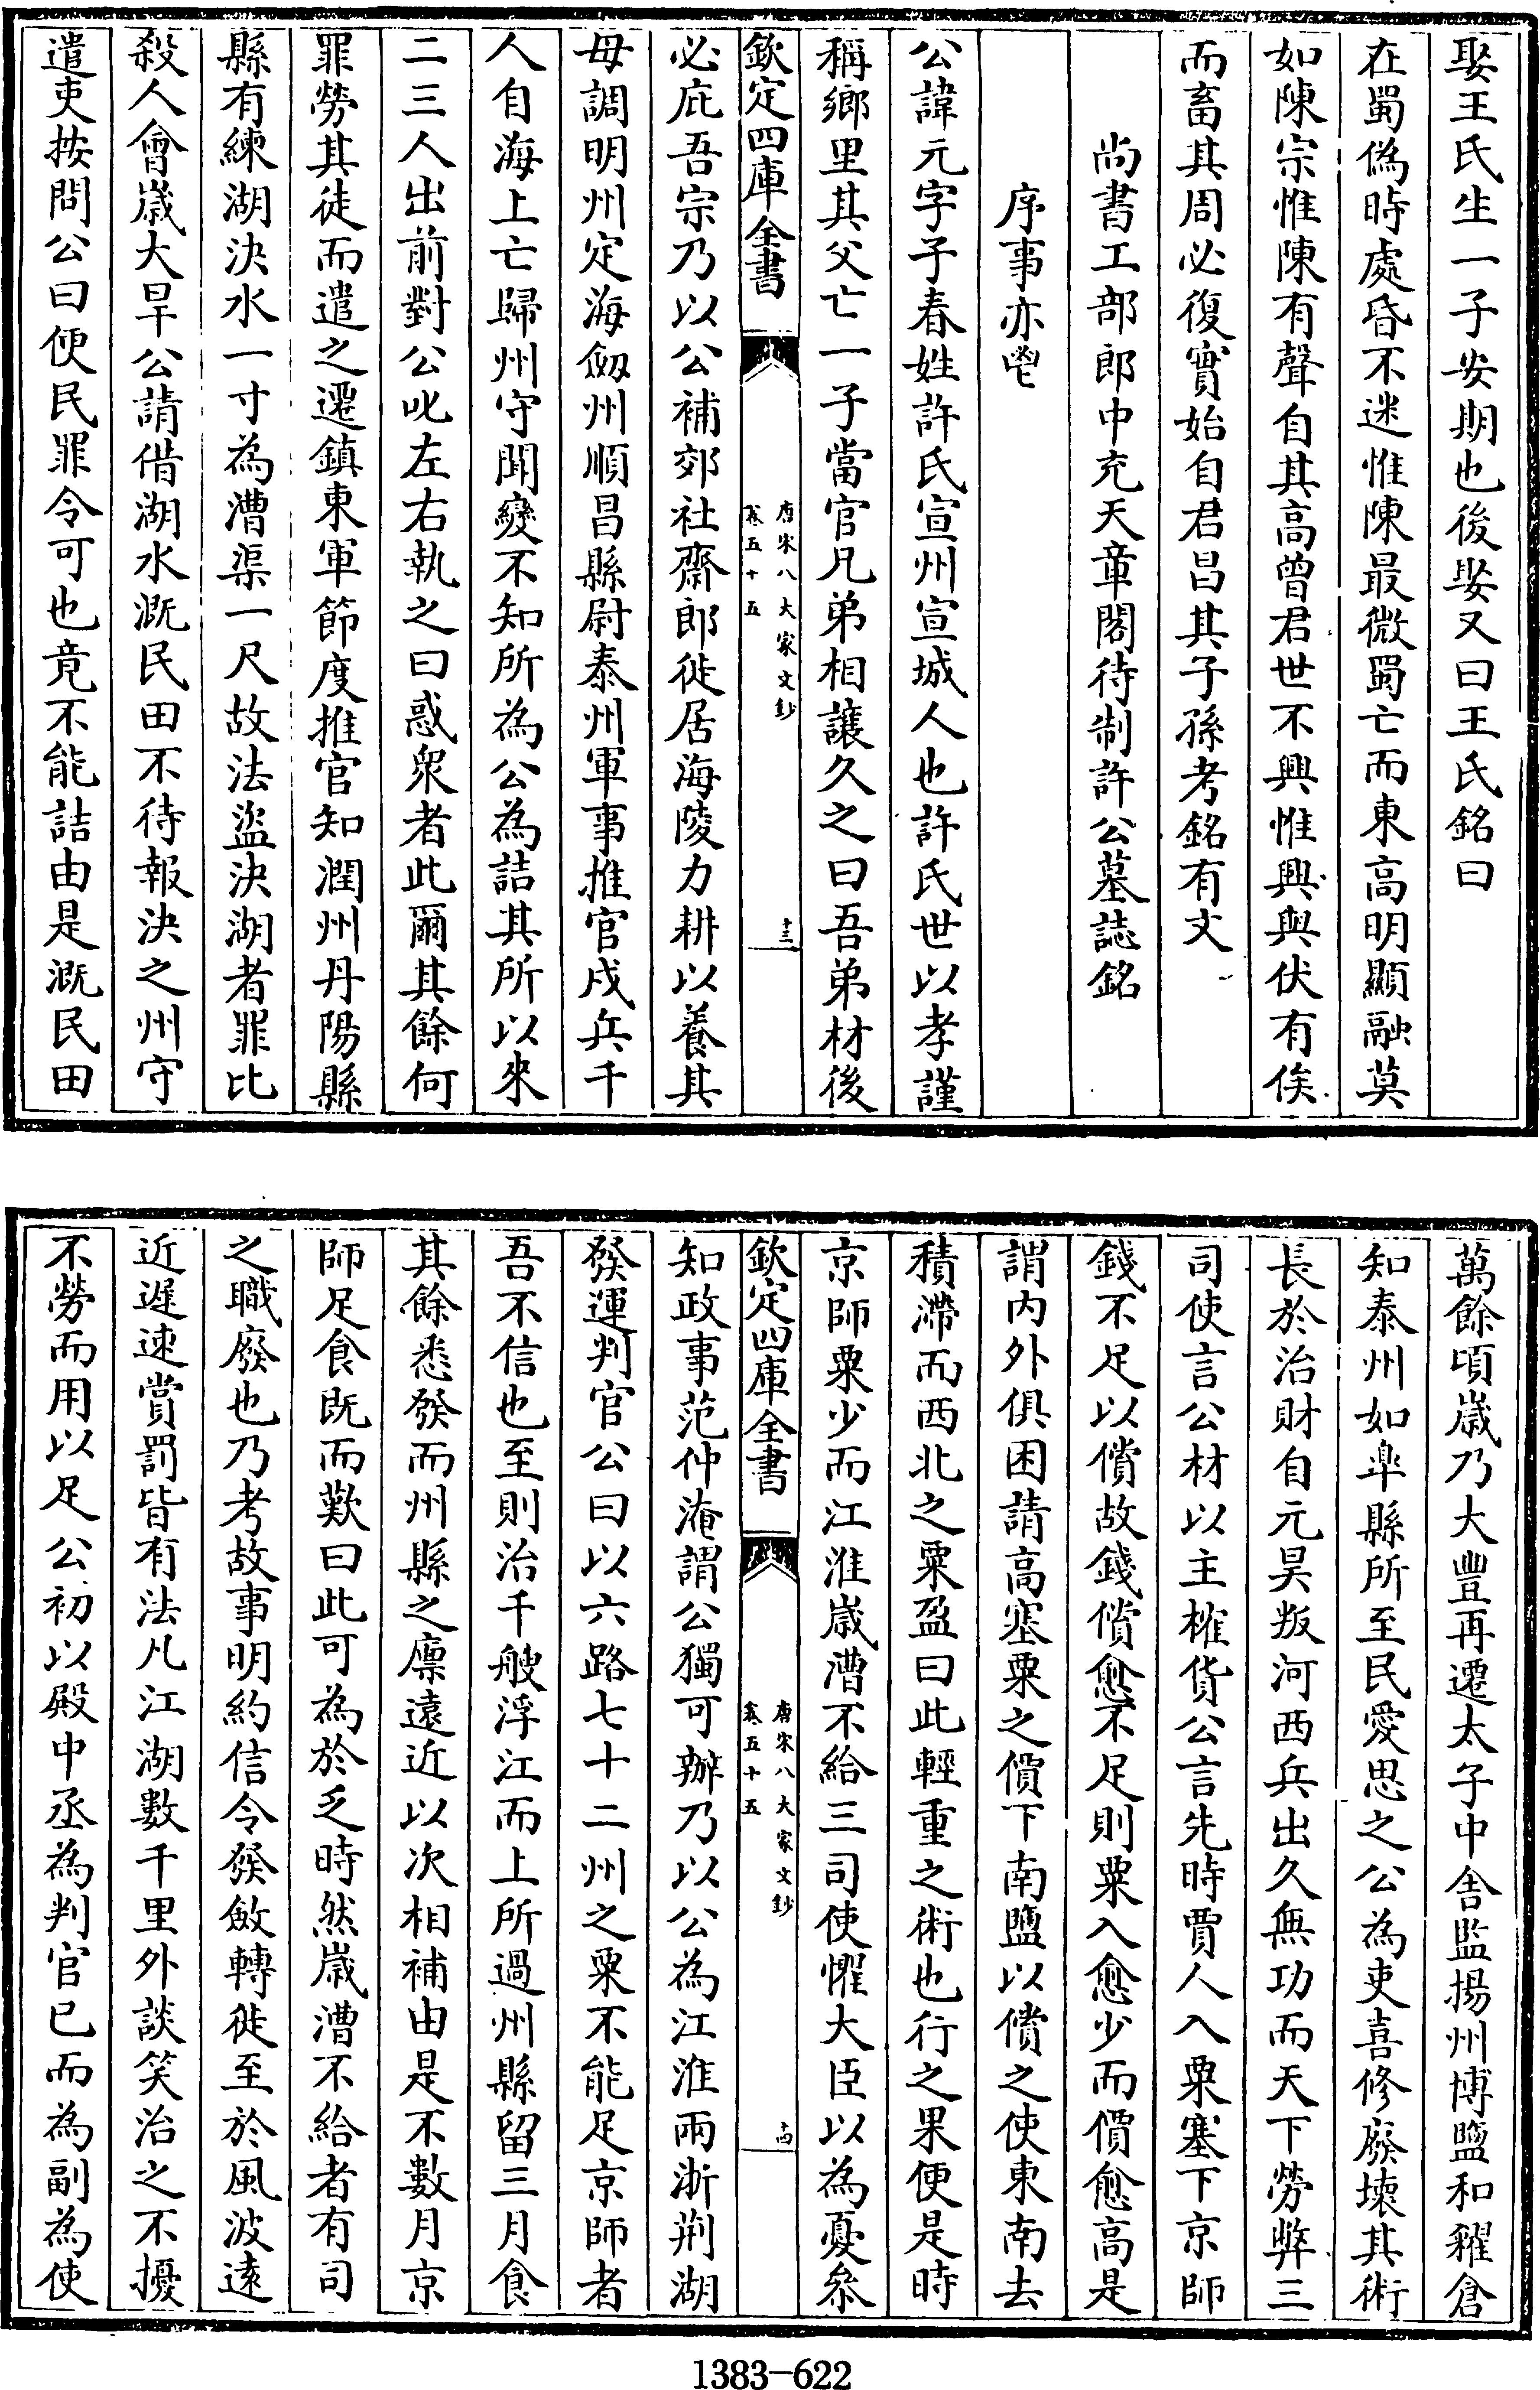 娶王氏生一子安期也後娶又曰王氏銘曰
在蜀偽時處昏不迷惟陳最微蜀亡而東高明顯融莫
如陳宗惟陳有聲自其高曾君世不興惟興與伏有俟
而畜其周必復實始自君昌其子孫考銘有文
尚書工部郎中充天章閣待制許公墓誌銘
序事亦鬯
公諱元字子春姓許氏宣州宣城人也許氏世以孝謹
稱鄉里其父亡一子當官凡弟相讓久之曰吾弟材後
欽定四庫全書
唐宋八大家文鈔
卷五十五
十三
必庇吾宗乃以公補郊社齋郎徙居海陵力耕以養其
母調明州定海劔州順昌縣尉泰州軍事推官戍兵千
人自海上亡歸州守聞變不知所為公為詰其所以來
二三人出前對公叱左右執之曰惑衆者此爾其餘何
罪勞其徒而遣之遷鎮東軍節度推官知潤州丹陽縣
縣有練湖決水一寸為漕渠一尺故法盜決湖者罪比
殺人會嵗大旱公請借湖水溉民田不待報決之州守
遣吏按問公曰便民罪令可也竟不能詰由是溉民田
萬餘頃嵗乃大豐再遷太子中舍監揚州博鹽和糴倉
知泰州如臯縣所至民愛思之公為吏喜修廢壞其術
長於治財自元昊叛河西兵出久無功而天下勞弊三
司使言公材以主榷貨公言先時賈人入粟塞下京師
錢不足以償故錢償愈不足則粟入愈少而價愈高是
謂内外俱困請高塞粟之價下南鹽以償之使東南去
積滯而西北之粟盈曰此輕重之術也行之果便是時
京師粟少而江淮嵗漕不給三司使懼大臣以為憂叅
欽定四庫全書
唐宋八大家文鈔
卷五十五
十四
知政事范仲淹謂公獨可辦乃以公為江淮兩浙荆湖
發運判官公曰以六路七十二州之粟不能足京師者
吾不信也至則治千艘浮江而上所過州縣留三月食
其餘悉發而州縣之廩遠近以次相補由是不數月京
師足食既而歎曰此可為於乏時然嵗漕不給者有司
之職廢也乃考故事明約信令發斂轉徙至於風波遠
近遲速賞罰皆有法凡江湖數千里外談笑治之不擾
不勞而用以足公初以殿中丞為判官已而為副為使
1383-622